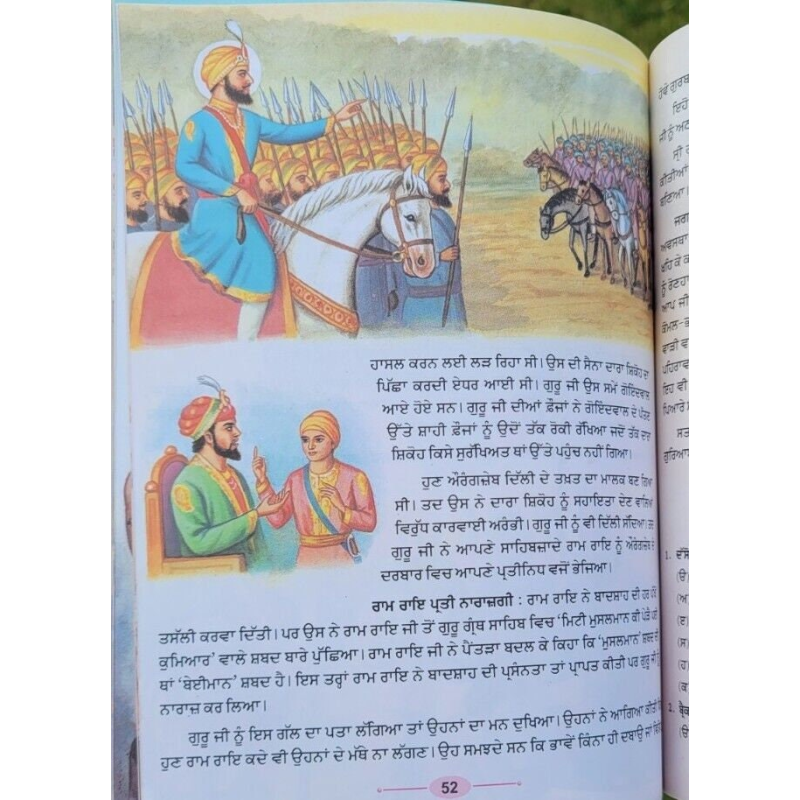 ਹਾਸਲ ਕਰਨ ਲਈ ਲੜ ਰਿਹਾ ਸੀ। ਉਸ ਦੀ ਸੈਨਾ ਦਾਰਾ ਸ਼ਿਕੋਹ ਦਾ
ਪਿੱਛਾ ਕਰਦੀ ਏਧਰ ਆਈ ਸੀ। ਗੁਰੂ ਜੀ ਉਸ ਸਮੇਂ ਗੋਇੰਦਵਾਲ
ਆਏ ਹੋਏ ਸਨ। ਗੁਰੂ ਜੀ ਦੀਆਂ ਫ਼ੌਜਾਂ ਨੇ ਗੋਇੰਦਵਾਲ ਦੇ ਪੱਤਣ
ਉੱਤੇ ਸ਼ਾਹੀ ਫ਼ੌਜਾਂ ਨੂੰ ਉਦੋਂ ਤੱਕ ਰੋਕੀ ਰੱਖਿਆ ਜਦੋਂ ਤੱਕ ਦਾਰਾ
ਸ਼ਿਕੋਹ ਕਿਸੇ ਸੁਰੱਖਿਅਤ ਥਾਂ ਉੱਤੇ ਪਹੁੰਚ ਨਹੀਂ ਗਿਆ।
ਹੁਣ ਔਰੰਗਜ਼ੇਬ ਦਿੱਲੀ ਦੇ ਤਖ਼ਤ ਦਾ ਮਾਲਕ ਬਣ ਗਿਆ
ਸੀ। ਤਦ ਉਸ ਨੇ ਦਾਰਾ ਸ਼ਿਕੋਹ ਨੂੰ ਸਹਾਇਤਾ ਦੇਣ ਵਾਲਿਆਂ
ਵਿਰੁੱਧ ਕਾਰਵਾਈ ਅਰੰਭੀ। ਗੁਰੂ ਜੀ ਨੂੰ ਵੀ ਦਿੱਲੀ ਸੱਦਿਆ।
ਗੁਰੂ ਜੀ ਨੇ ਆਪਣੇ ਸਾਹਿਬਜ਼ਾਦੇ ਰਾਮ ਰਾਇ ਨੂੰ ਔਰੰਗਜ਼ੇਬ ਦੇ
ਦਰਬਾਰ ਵਿਚ ਆਪਣੇ ਪ੍ਰਤੀਨਿਧ ਵਜੋਂ ਭੇਜਿਆ।
ਰਾਮ ਰਾਇ ਪ੍ਰਤੀ ਨਾਰਾਜ਼ਗੀ : ਰਾਮ ਰਾਇ ਨੇ ਬਾਦਸ਼ਾਹ ਦੀ ਹਰ ਪੱਖੋਂ
ਤਸੱਲੀ ਕਰਵਾ ਦਿੱਤੀ। ਪਰ ਉਸ ਨੇ ਰਾਮ ਰਾਇ ਜੀ ਤੋਂ ਗੁਰੂ ਗ੍ਰੰਥ ਸਾਹਿਬ ਵਿਚ 'ਮਿਟੀ ਮੁਸਲਮਾਨ ਕੀ ਪੇੜੈ ਪਈ
ਕੁਮਿਆਰ' ਵਾਲੇ ਸ਼ਬਦ ਬਾਰੇ ਪੁੱਛਿਆ। ਰਾਮ ਰਾਇ ਜੀ ਨੇ ਪੈਂਤੜਾ ਬਦਲ ਕੇ ਕਿਹਾ ਕਿ 'ਮੁਸਲਮਾਨ' ਸ਼ਬਦ ਦੀ
ਥਾਂ 'ਬੇਈਮਾਨ' ਸ਼ਬਦ ਹੈ। ਇਸ ਤਰ੍ਹਾਂ ਰਾਮ ਰਾਇ ਨੇ ਬਾਦਸ਼ਾਹ ਦੀ ਪ੍ਰਸੰਨਤਾ ਤਾਂ ਪ੍ਰਾਪਤ ਕੀਤੀ ਪਰ ਗੁਰੂ ਜੀ ਨੂੰ
ਨਾਰਾਜ਼ ਕਰ ਲਿਆ।
ਗੁਰੂ ਜੀ ਨੂੰ ਇਸ ਗੱਲ ਦਾ ਪਤਾ ਲੱਗਿਆ ਤਾਂ ਉਹਨਾਂ ਦਾ ਮਨ ਦੁਖਿਆ। ਉਹਨਾਂ ਨੇ ਆਗਿਆ ਕੀਤੀ ਕਿ
ਹੁਣ ਰਾਮ ਰਾਇ ਕਦੇ ਵੀ ਉਹਨਾਂ ਦੇ ਮੱਥੇ ਨਾ ਲੱਗਣ। ਉਹ ਸਮਝਦੇ ਸਨ ਕਿ ਭਾਵੇਂ ਕਿੰਨਾ ਹੀ ਦਬਾਉ ਜਾਂ
52
ਇਹੋ
ਜੀ ਨੂੰ
ਸ੍ਰੀ
ਕੀਤੀਆਂ
ਅਵਸਥਾ
ਆਪ ਜੀ
ਕੋਮਲ-
ਵਾੜੀ
ਪਹਿਰਾਵ
ਇਹ ਵੀ
ਪਿਆਰੇ
ਸਤ
1. ਦੱਸੋ
(ੳ)
(ਅ)
(ੲ)
(ਸ)
(ਹ)
(ਕ)
2.
(ੳ)